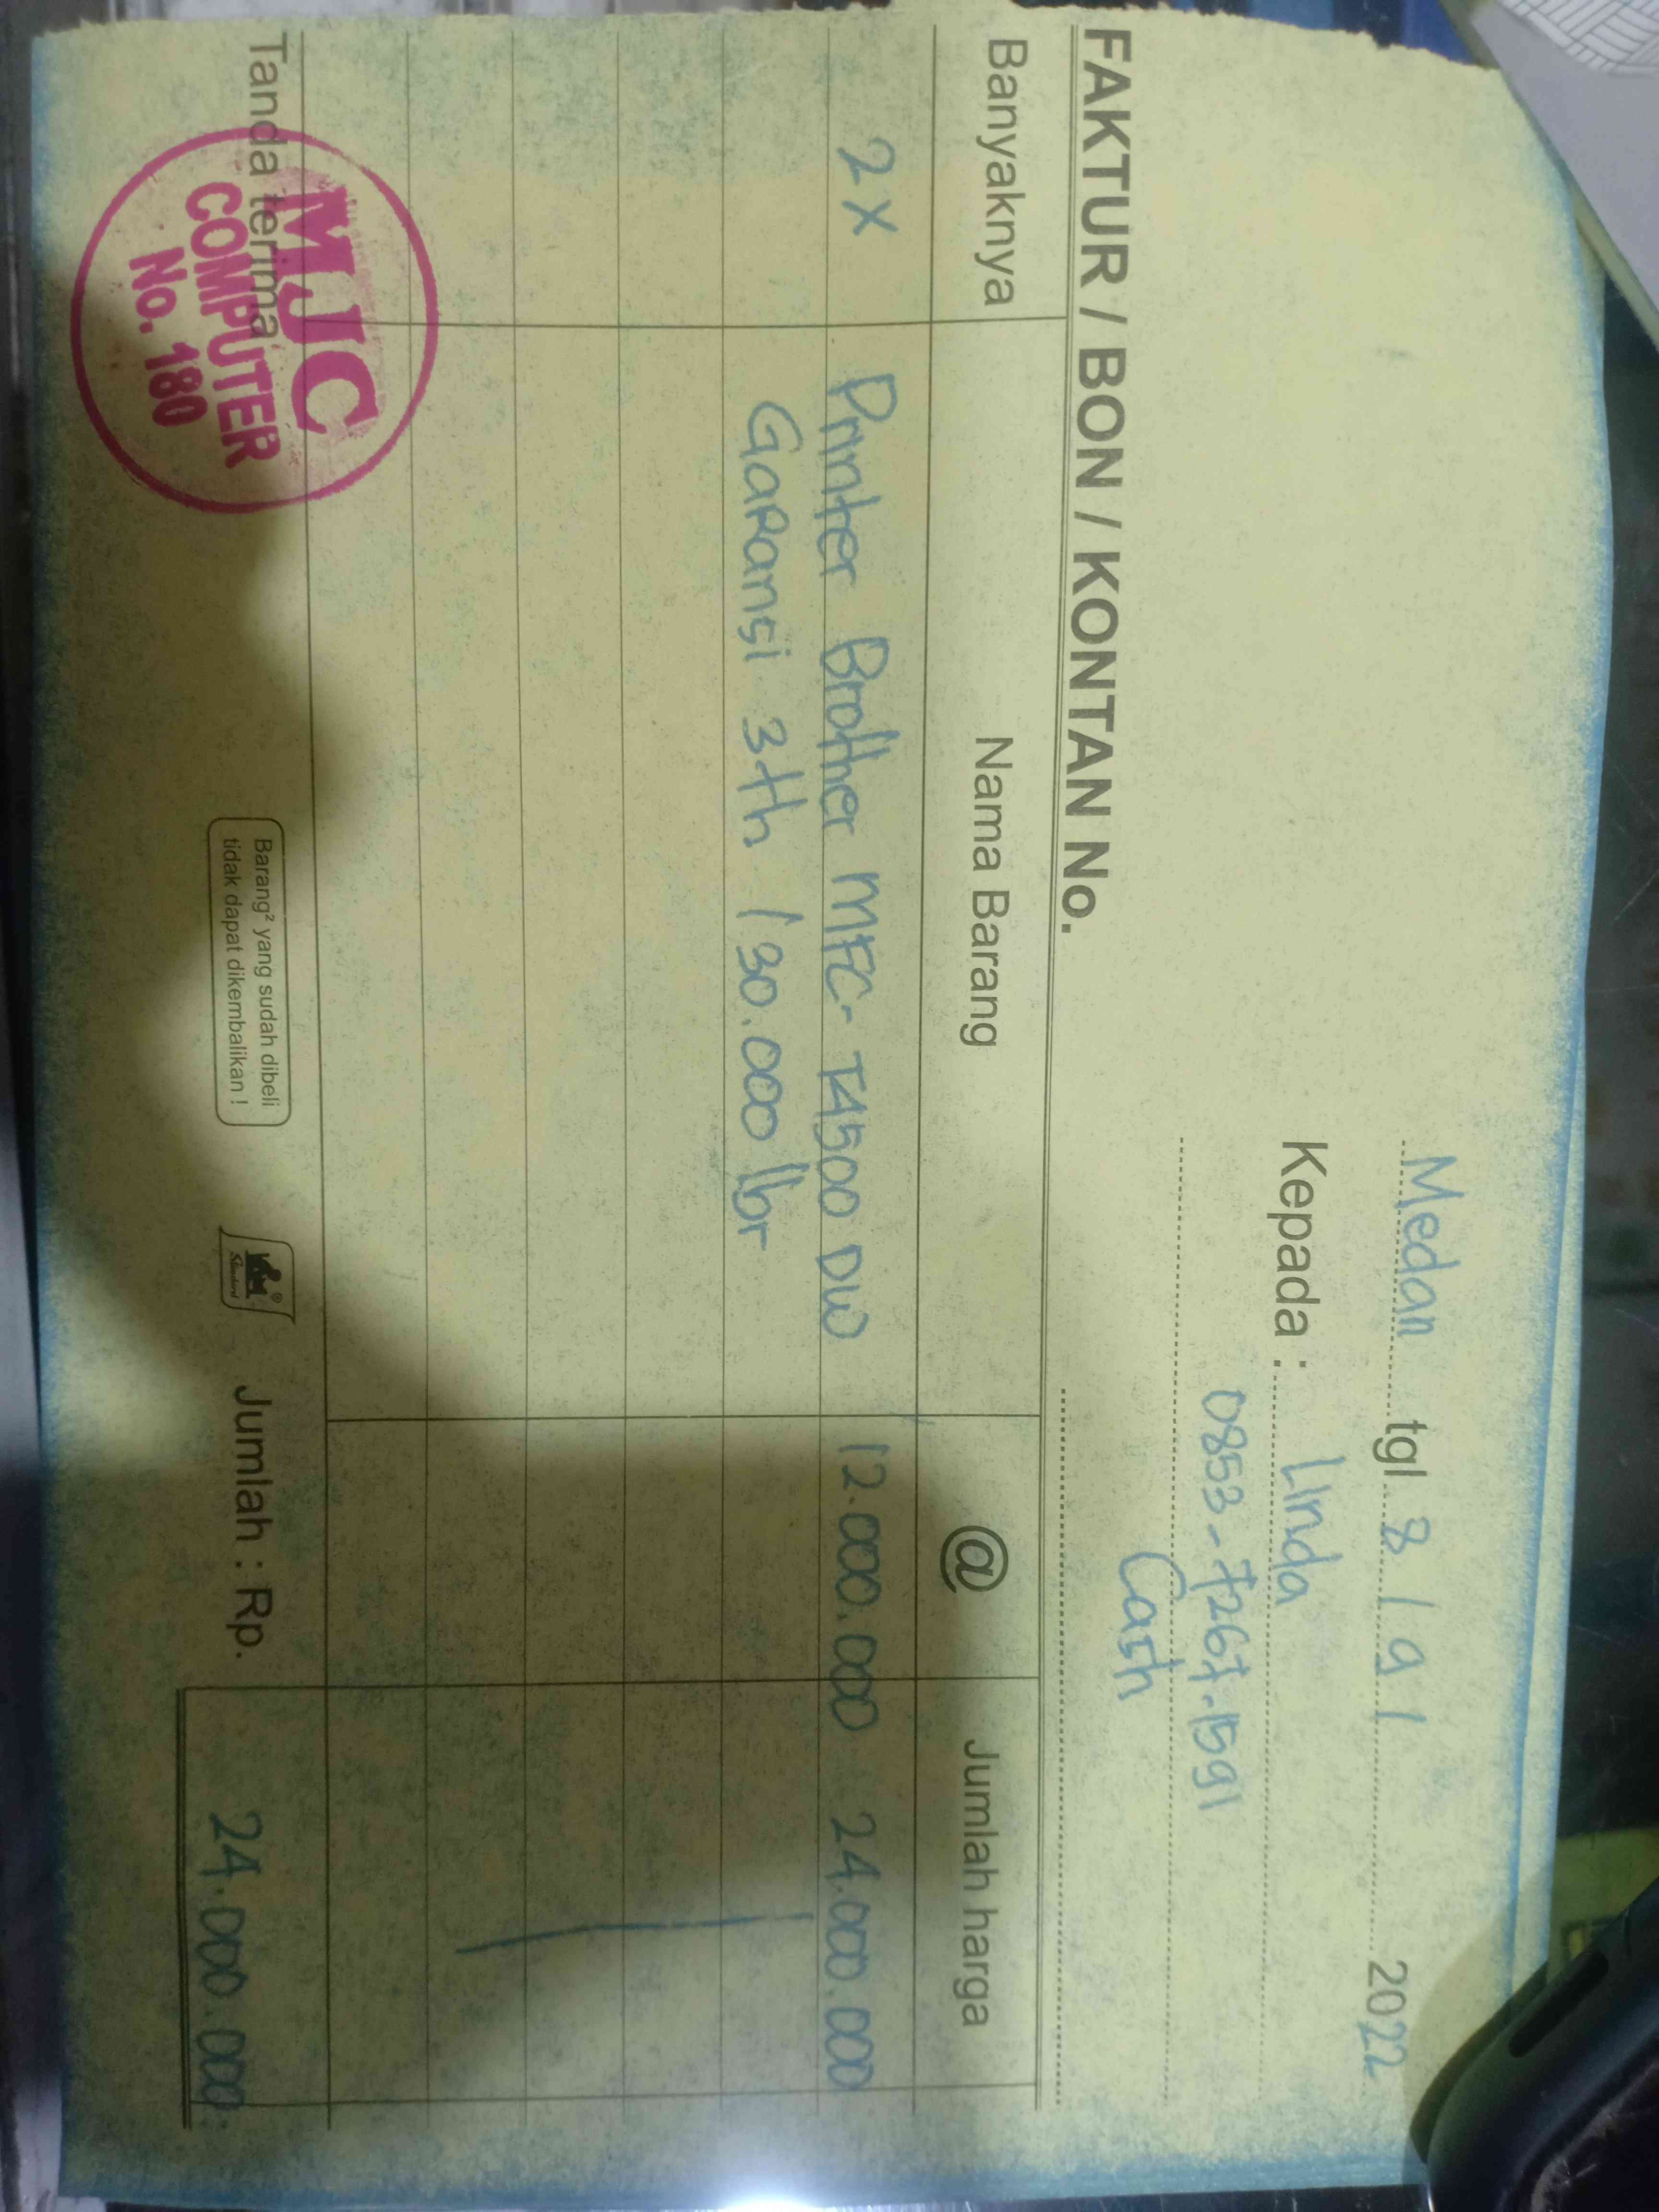 Medan tgl. 8 / 9 / 2022
Kepada : Linda
0853-7267.1591
Cash
FAKTUR / BON / KONTAN No.
Banyaknya Nama Barang @ Jumlah harga
2 X Printer Brother MFC-T4500 DW 12.000.000 24.000.000
Garansi 3th / 30.000 lbr
Tanda terima
MJC
COMPUTER
No. 180
Barang² yang sudah dibeli
tidak dapat dikembalikan !
Standard
Jumlah : Rp. 24.000.000